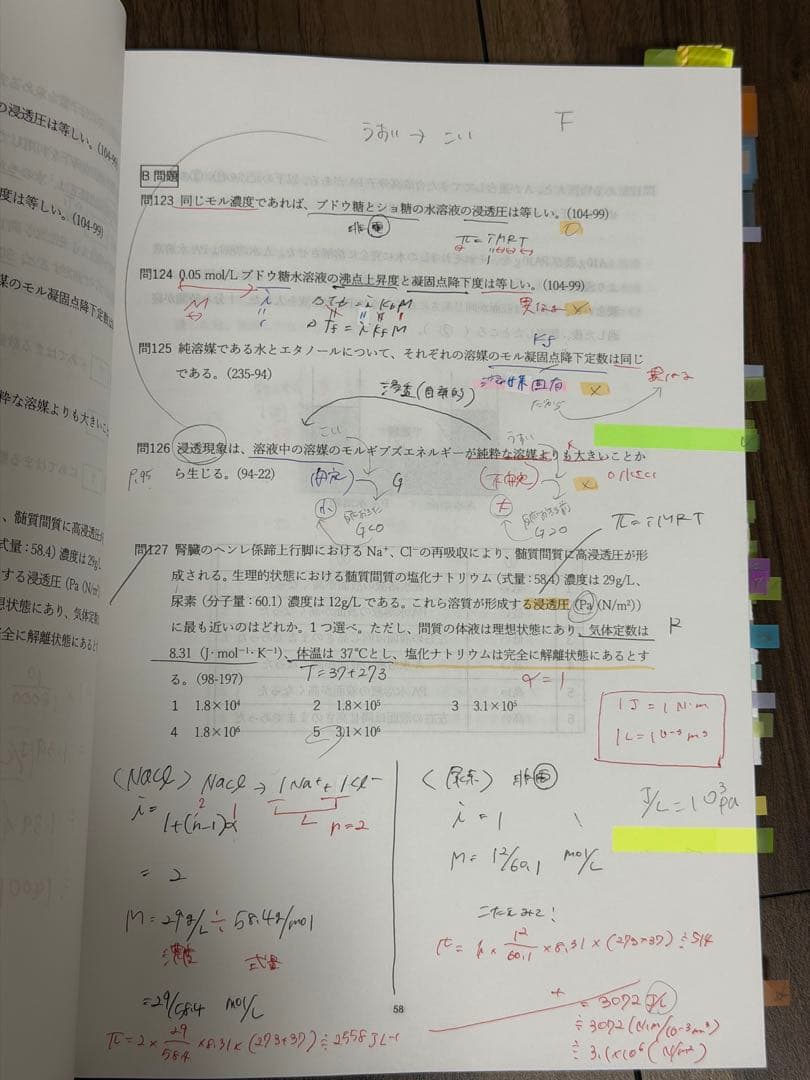 うすい → こい
F
B 問題
問123 同じモル濃度であれば、ブドウ糖とショ糖の水溶液の浸透圧は等しい。(104-99)
非電
π=iMRT
問124 0.05 mol/L ブドウ糖水溶液の沸点上昇度と凝固点降下度は等しい。(104-99)
M
i
ΔTb = i Kb M
ΔTf = i Kf M
異なる ×
Kf
問125 純溶媒である水とエタノールについて、それぞれの溶媒のモル凝固点降下定数は同じ
である。(235-94)
溶媒固有
×
異なる
だから
浸透(自発的)
こい
うすい
問126 浸透現象は、溶液中の溶媒のモルギブズエネルギーが純粋な溶媒よりも大きいことか
ら生じる。(94-22)
P.95
(安定)
G
(不安定)
×
小さい
小
G<0
大
G>0
π=iMRT
問127 腎臓のヘンレ係蹄上行脚における Na⁺、Cl⁻の再吸収により、髄質間質に高浸透圧が形
成される。生理的状態における髄質間質の塩化ナトリウム（式量：58.4）濃度は 29g/L、
尿素（分子量：60.1）濃度は 12g/L である。これら溶質が形成する浸透圧（Pa（N/m²））
に最も近いのはどれか。1 つ選べ。ただし、間質の体液は理想状態にあり、気体定数は
R
8.31（J・mol⁻¹・K⁻¹）、体温は 37℃とし、塩化ナトリウムは完全に解離状態にあるとす
る。(98-197)
T=37+273
α=1
1 1.8×10⁴ 2 1.8×10⁵ 3 3.1×10⁵
4 1.8×10⁶ 5 3.1×10⁶
1J = 1N·m
1L = 10⁻³m³
J/L = 10³Pa
(NaCl) NaCl → 1Na⁺ + 1Cl⁻
i = 1+(n-1)α
2 1
n=2
= 2
M = 29g/L ÷ 58.4g/mol
濃度 式量
= 29/58.4 mol/L
π = 2 × 29/58.4 × 8.31 × (273+37) ≒ 2558 JL⁻¹
(尿素) 非電
i = 1
M = 12/60.1 mol/L
π = 1 × 12/60.1 × 8.31 × (273+37) ≒ 514
+
= 3072 J/L
≒ 3072 (N·m/10⁻³m³)
≒ 3.1×10⁶ (N/m²)
58